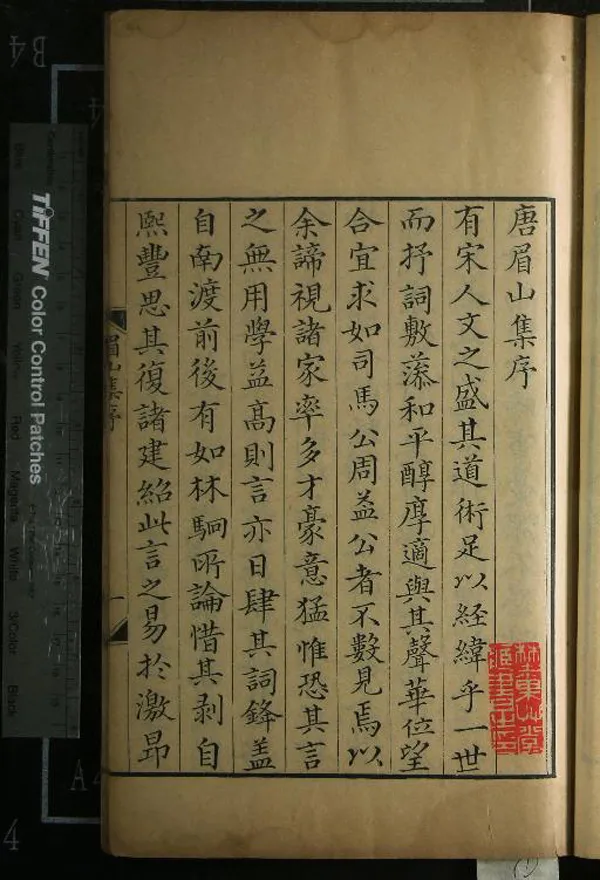 唐眉山集序
有宋人文之盛其道術足以經緯乎一世
而抒詞敷藻和平醇厚適與其聲華位望
合宜求如司馬公周益公者不數見焉以
余諦視諸家率多才豪意猛惟恐其言
之無用學益高則言亦日肆其詞鋒盖
自南渡前後有如林駉所論惜其剥自
熙豐思其復諸建紹此言之易於激昂
眉山集序
一
TIFFEN Color Control Patches
Cyan
Green
Yellow
Red
Magenta
White
3/Color
Black
B4
A4
4